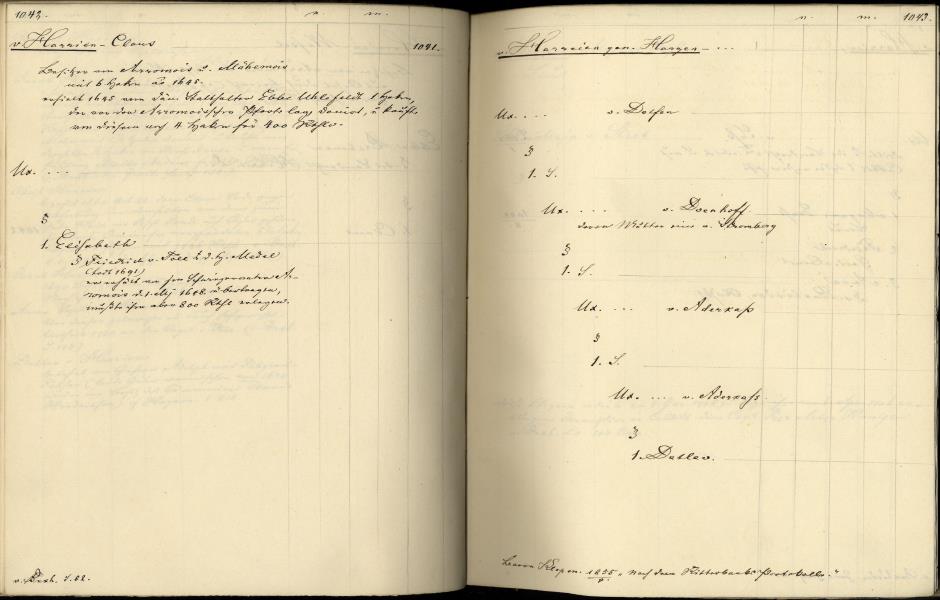 1042.
n. m.
v. Harrien - Claus 1041.
Besitzer von Arromois u. Mäkemois
mit 6 Haken ao 1645.
erhielt 1645 vom dän. Statthalter Ebbe Uhlefeldt 1 Haken,
der vor der Arromoisschen Pforte lag, Damot, u. kaufte
von diesem noch 4 Haken für 400 Rthlr.
Ux. ...
§
1. Elisabeth
§ Friedrich v. Toll z. d. H. Medel
(todt 1691)
er erhält von seinem Schwiegervater Ar-
romois d. 1. Mj 1668 übertragen,
mußte ihm aber 800 Rthl. erlegen.
v. S. 22.
n. m. 1043.
v. Harrien gen. Hargen - ...
Ux. ... v. Dolfen
§
1. S.
Ux. ... v. Doenhoff
deren Mutter eine v. Stromberg
§
1. S.
Ux. ... v. Aderkaß
§
1. S.
Ux. ... v. Aderkaß.
§
1. Detlev.
"Nach dem Ritterbank-Protokolle."